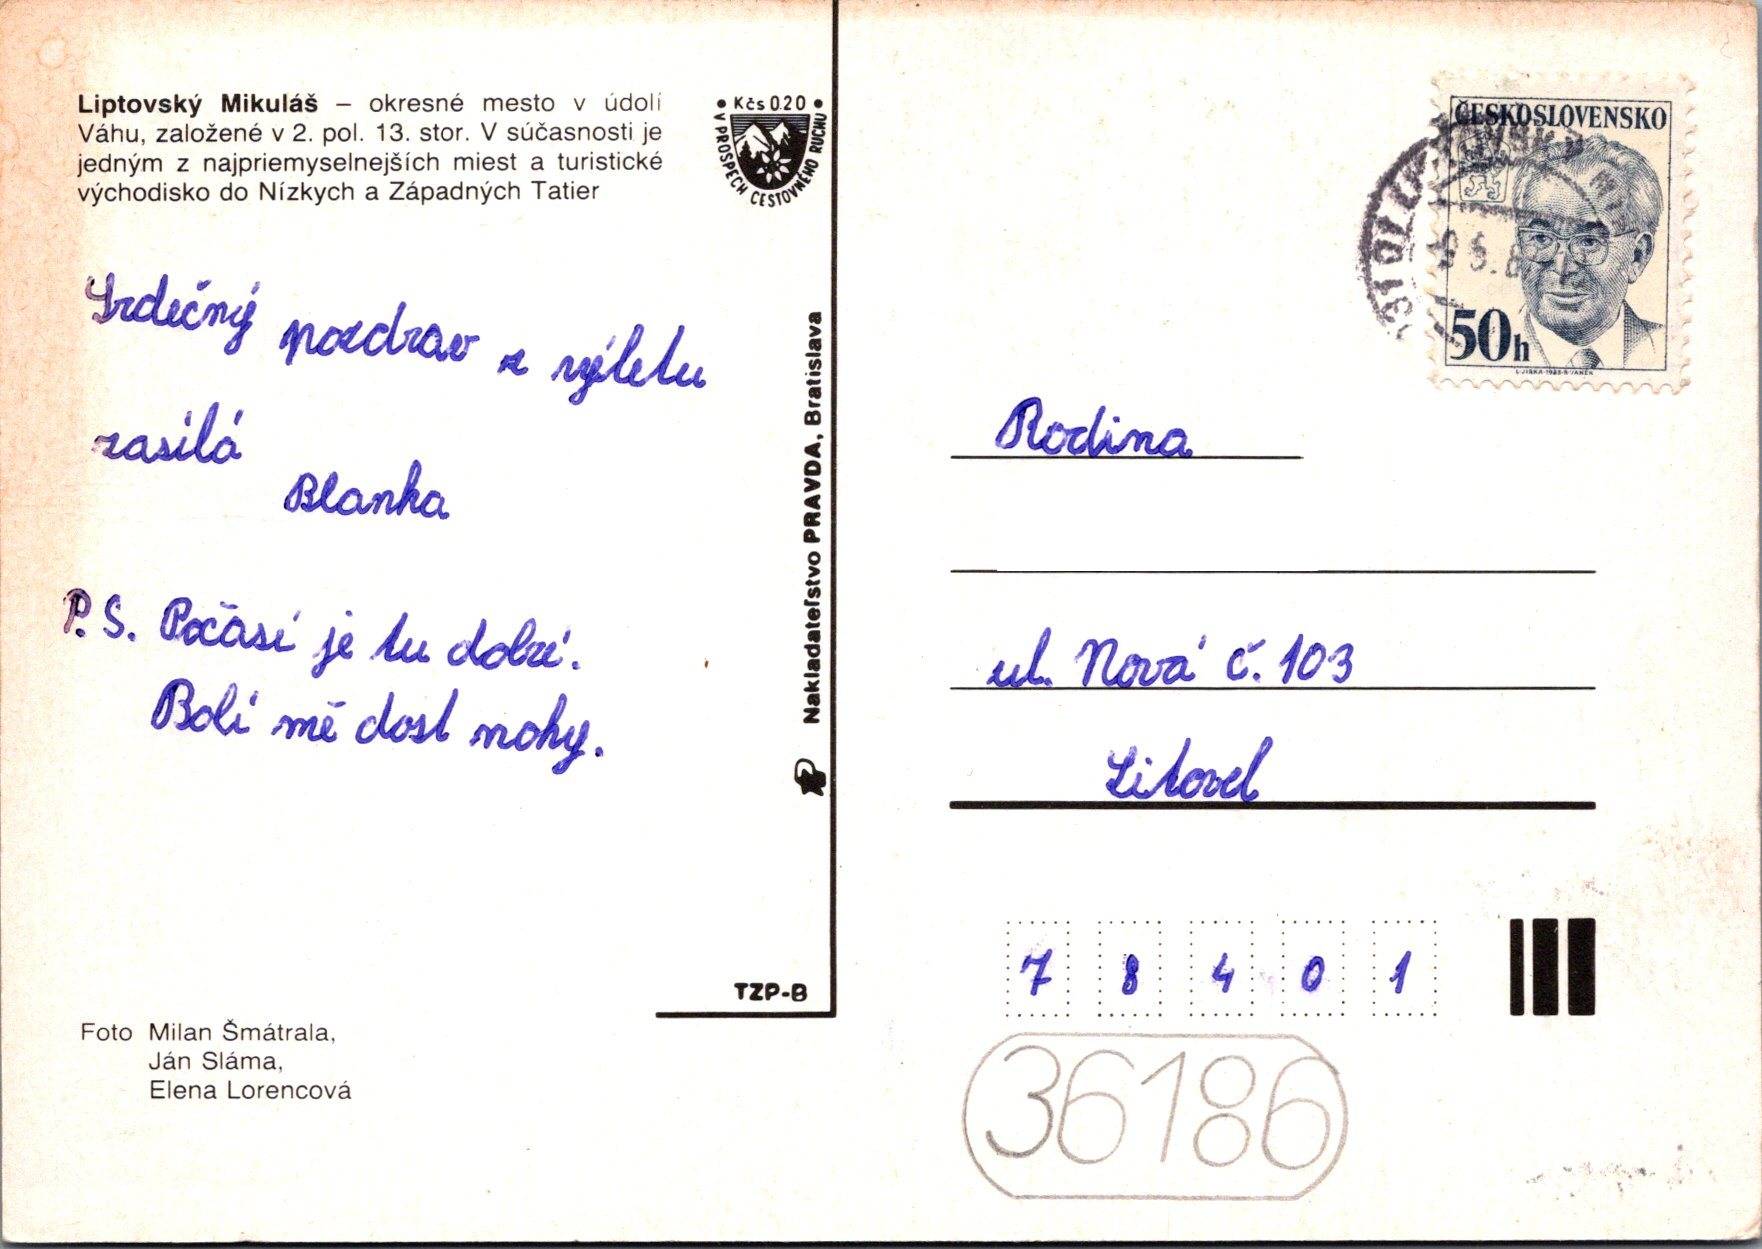 Liptovský Mikuláš – okresné mesto v údolí
Váhu, založené v 2. pol. 13. stor. V súčasnosti je
jedným z najpriemyselnejších miest a turistické
východisko do Nízkych a Západných Tatier
• Kčs 0.20 •
V PROSPECH CESTOVNÉHO RUCHU
Srdečný pozdrav z výletu
zasílá
Blanka
P.S. Počasí je tu dobré.
Bolí mě dost nohy.
Foto Milan Šmátrala,
Ján Sláma,
Elena Lorencová
Nakladateľstvo PRAVDA, Bratislava
TZP-B
ČESKOSLOVENSKO
50h
Rodina
ul. Nová č. 103
Litovel
7 8 4 0 1
36186